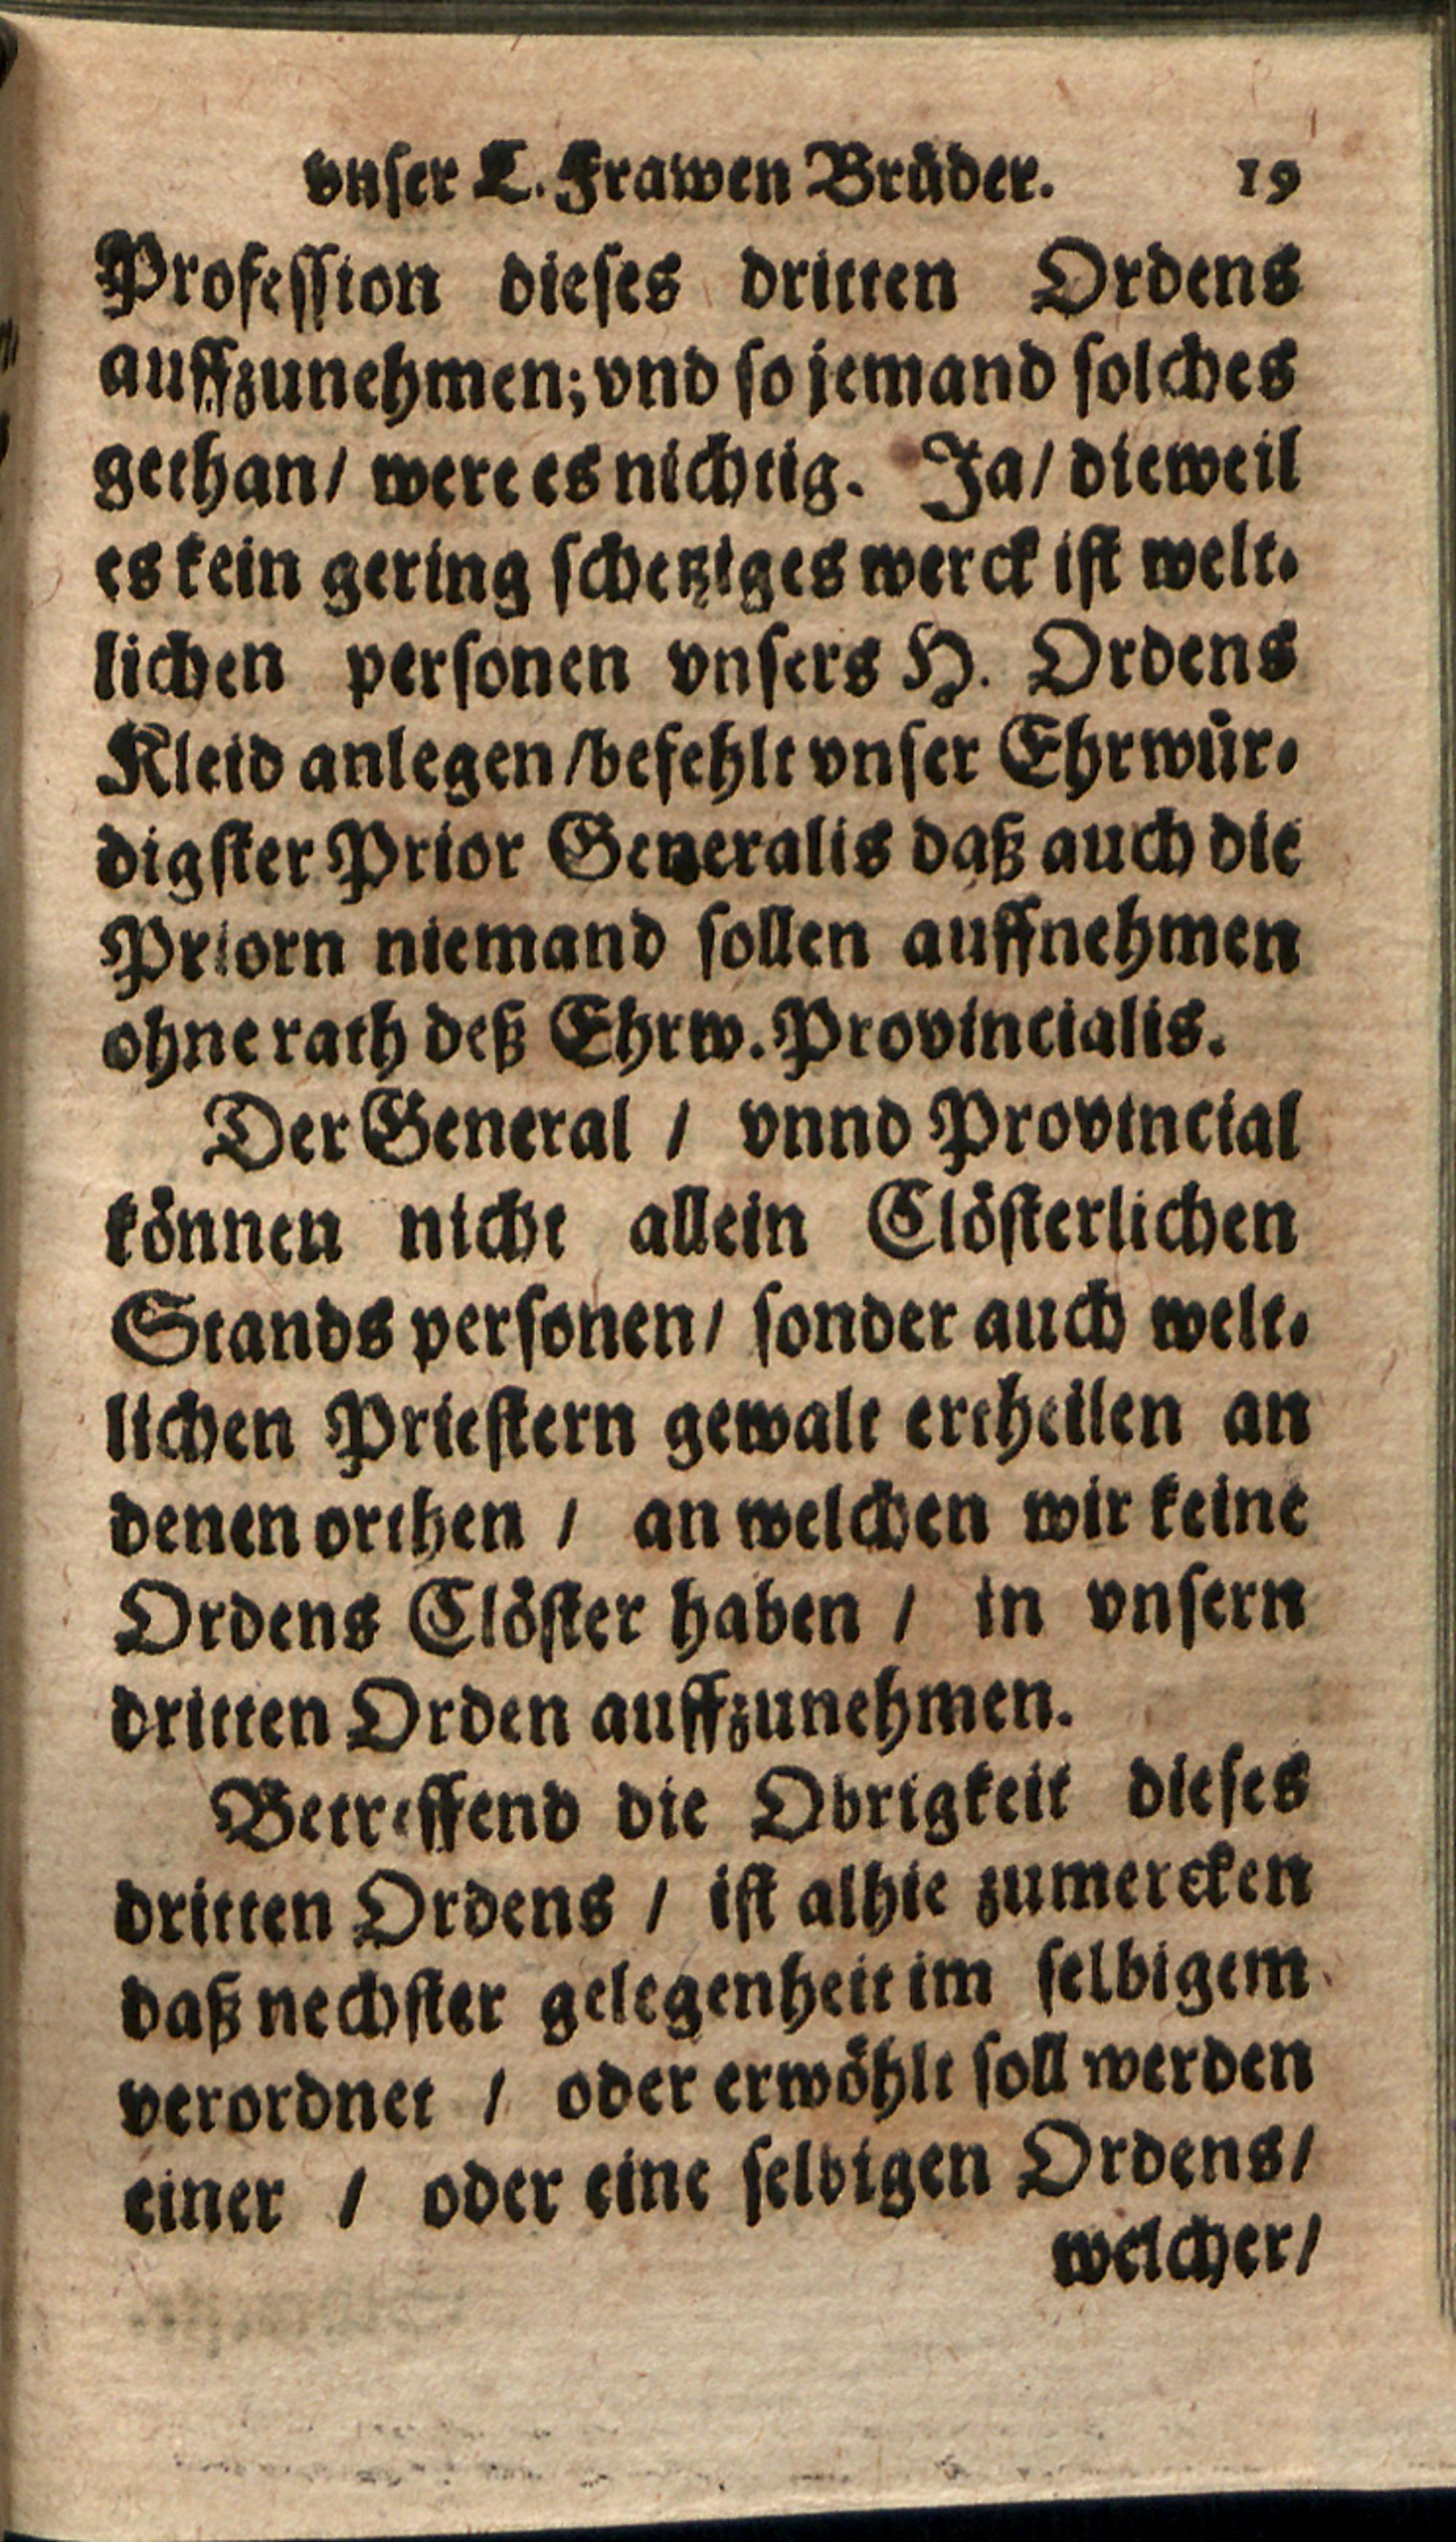 vnser L. Frawen Brüder. 19
Profession dieses dritten Ordens
auffzunehmen; vnd so jemand solches
gethan/ were es nichtig. Ja/ dieweil
es kein gering schetziges werck ist welt-
lichen personen vnsers H. Ordens
Kleid anlegen/ befehlt vnser Ehrwür-
digster Prior Generalis daß auch die
Priorn niemand sollen auffnehmen
ohne rath deß Ehrw. Provincialis.
Der General / vnnd Provincial
können nicht allein Clösterlichen
Stands personen/ sonder auch welt-
lichen Priestern gewalt ertheilen an
denen orthen / an welchen wir keine
Ordens Clöster haben / in vnsern
dritten Orden auffzunehmen.
Betreffend die Obrigkeit dieses
dritten Ordens / ist alhie zumercken
daß nechster gelegenheit im selbigem
verordnet / oder erwöhlt soll werden
einer / oder eine selbigen Ordens/
welcher/